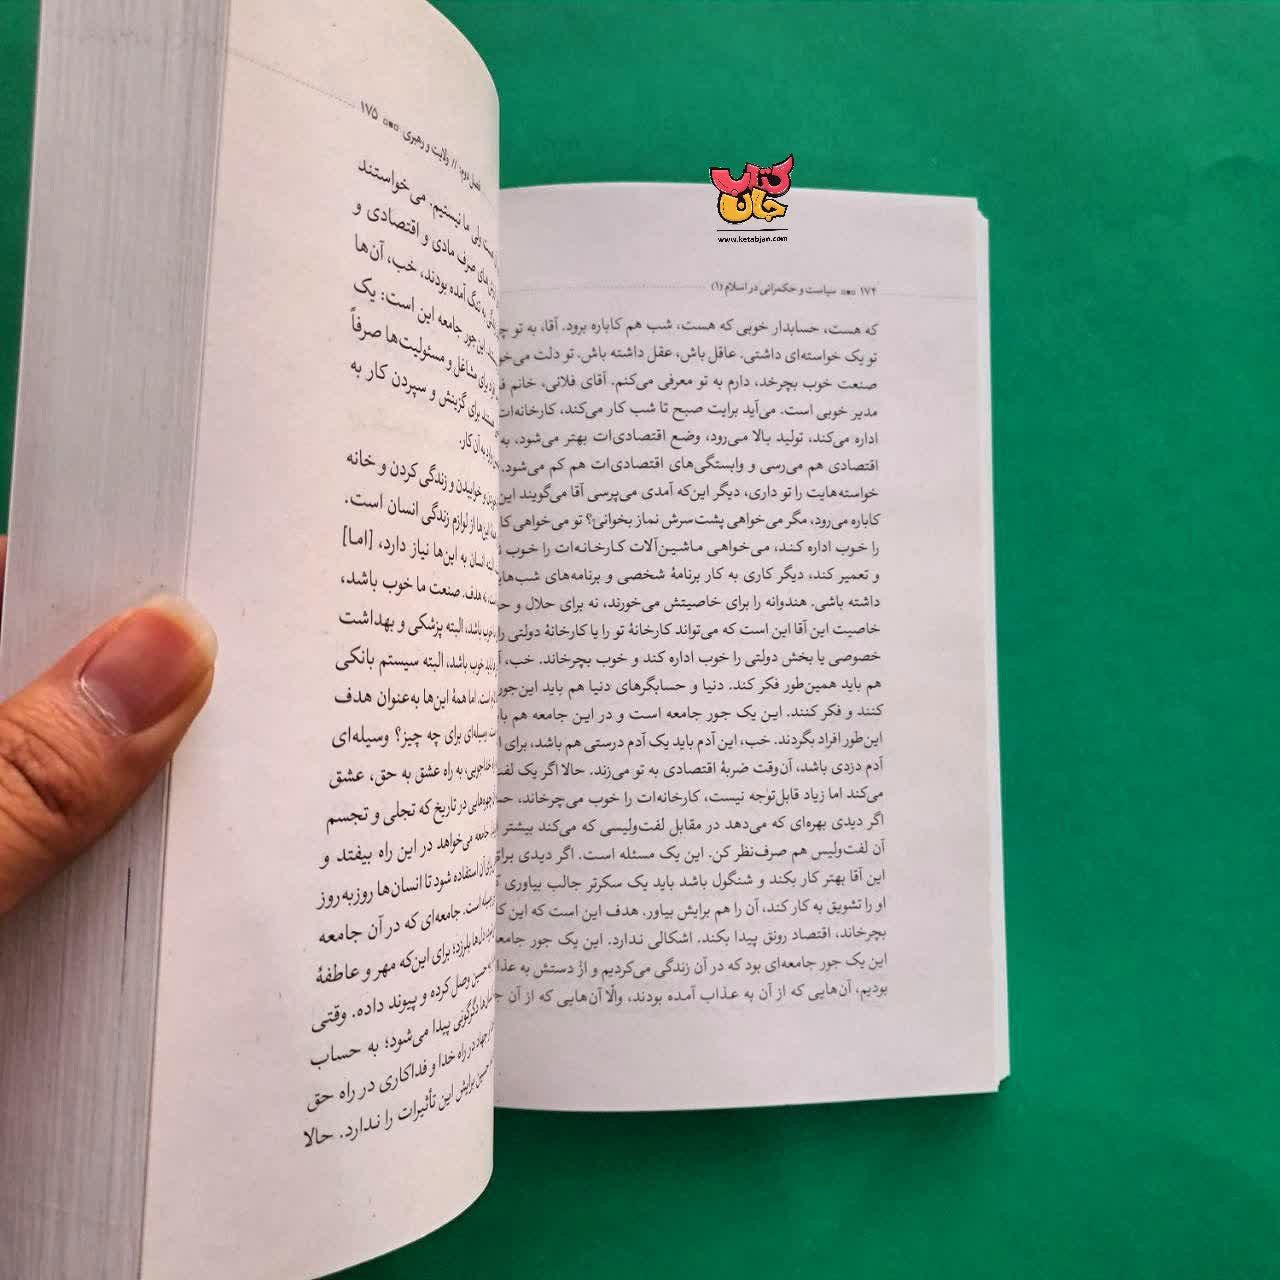 کتاب جان
www.ketabjan.com
۱۷۴ سیاست و حکمرانی در اسلام (۱)
که هست، حسابدار خوبی که هست، شب هم کاباره برود. آقا، به تو
تو یک خواسته‌ای داشتی. عاقل باش، عقل داشته باش. تو دلت
صنعت خوب بچرخد، دارم به تو معرفی می‌کنم. آقای فلانی، خانم
مدیر خوبی است. می‌آید برایت صبح تا شب کار می‌کند، کارخانه‌ات
اداره می‌کند، تولید بالا می‌رود، وضع اقتصادی‌ات بهتر می‌شود، به
اقتصادی هم می‌رسی و وابستگی‌های اقتصادی‌ات هم کم می‌شود.
خواسته‌هایت را تو داری، دیگر این‌که آمدی می‌پرسی آقا می‌گویند این
کاباره می‌رود، مگر می‌خواهی پشت‌سرش نماز بخوانی؟ تو می‌خواهی
را خوب اداره کند، می‌خواهی ماشین‌آلات کارخانه‌ات را خوب
و تعمیر کند، دیگر کاری به کار برنامهٔ شخصی و برنامه‌های
داشته باشی. هندوانه را برای خاصیتش می‌خورند، نه برای حلال و
خاصیت این آقا این است که می‌تواند کارخانهٔ تو را یا کارخانهٔ دولتی را
خصوصی یا بخش دولتی را خوب اداره کند و خوب بچرخاند. خب،
هم باید همین‌طور فکر کند. دنیا و حسابگرهای دنیا هم باید این‌جور
کنند و فکر کنند. این یک جور جامعه است و در این جامعه هم
این‌طور افراد بگردند. خب، این آدم باید یک آدم درستی هم باشد، برای
آدم دزدی باشد، آن‌وقت ضربهٔ اقتصادی به تو می‌زند. حالا اگر یک
می‌کند اما زیاد قابل‌توجه نیست، کارخانه‌ات را خوب می‌چرخاند،
اگر دیدی بهره‌ای که می‌دهد در مقابل لفت‌ولیسی که می‌کند بیشتر
آن لفت‌ولیس هم صرف‌نظر کن. این یک مسئله است. اگر دیدی
این آقا بهتر کار بکند و شنگول باشد باید یک سکرتر جالب بیاوری
او را تشویق به کار کند، آن را هم برایش بیاور. هدف این است که این
بچرخاند، اقتصاد رونق پیدا بکند. اشکالی ندارد. این یک جور
این یک جور جامعه‌ای بود که در آن زندگی می‌کردیم و از دستش به
بودیم، آن‌هایی که از آن به عذاب آمده بودند، والّا آن‌هایی که از آن
فصل دوم: // ولایت و رهبری ۱۷۵
ولی ما نیستیم. می‌خواستند
های صرف مادی و اقتصادی و
به تنگ آمده بودند، خب، آن‌ها
این جور جامعه این است: یک
برای مشاغل و مسئولیت‌ها صرفاً
هستند برای گزینش و سپردن کار به
به آن کار.
و خوابیدن و زندگی کردن و خانه
این‌ها از لوازم زندگی انسان است.
انسان به این‌ها نیاز دارد، [اما]
نه هدف. صنعت ما خوب باشد،
باشد، البته پزشکی و بهداشت
باید خوب باشد، البته سیستم بانکی
است، اما همهٔ این‌ها به‌عنوان هدف
وسیله‌ای برای چه چیز؟ وسیله‌ای
خداجویی، به راه عشق به حق، عشق
جلوه‌هایی در تاریخ که تجلی و تجسم
جامعه می‌خواهد در این راه بیفتد و
آن استفاده شود تا انسان‌ها روزبه‌روز
وسیله است. جامعه‌ای که در آن جامعه
دل‌ها بلرزد؛ برای این‌که مهر و عاطفهٔ
حسین وصل کرده و پیوند داده. وقتی
دگرگونی پیدا می‌شود؛ به حساب
جهاد در راه خدا و فداکاری در راه حق
حسین برایش این تأثیرات را ندارد. حالا